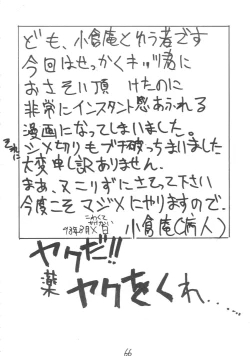 ども、小倉庵とゆう者です
今回はせっかくキッヅ君に
おさそい頂けたのに
非常にインスタント感あふれる
漫画になってしまいました。
それに
シメ切りもブチ破っちまいました
大変申し訳ありません。
まあ、ヌこりずにさそって下さい
今度こそマジメにやりますので。
こわくてかけない
'93年8月X日
小倉庵(病人)
ヤクだ!!
薬
ヤクをくれ.....
66